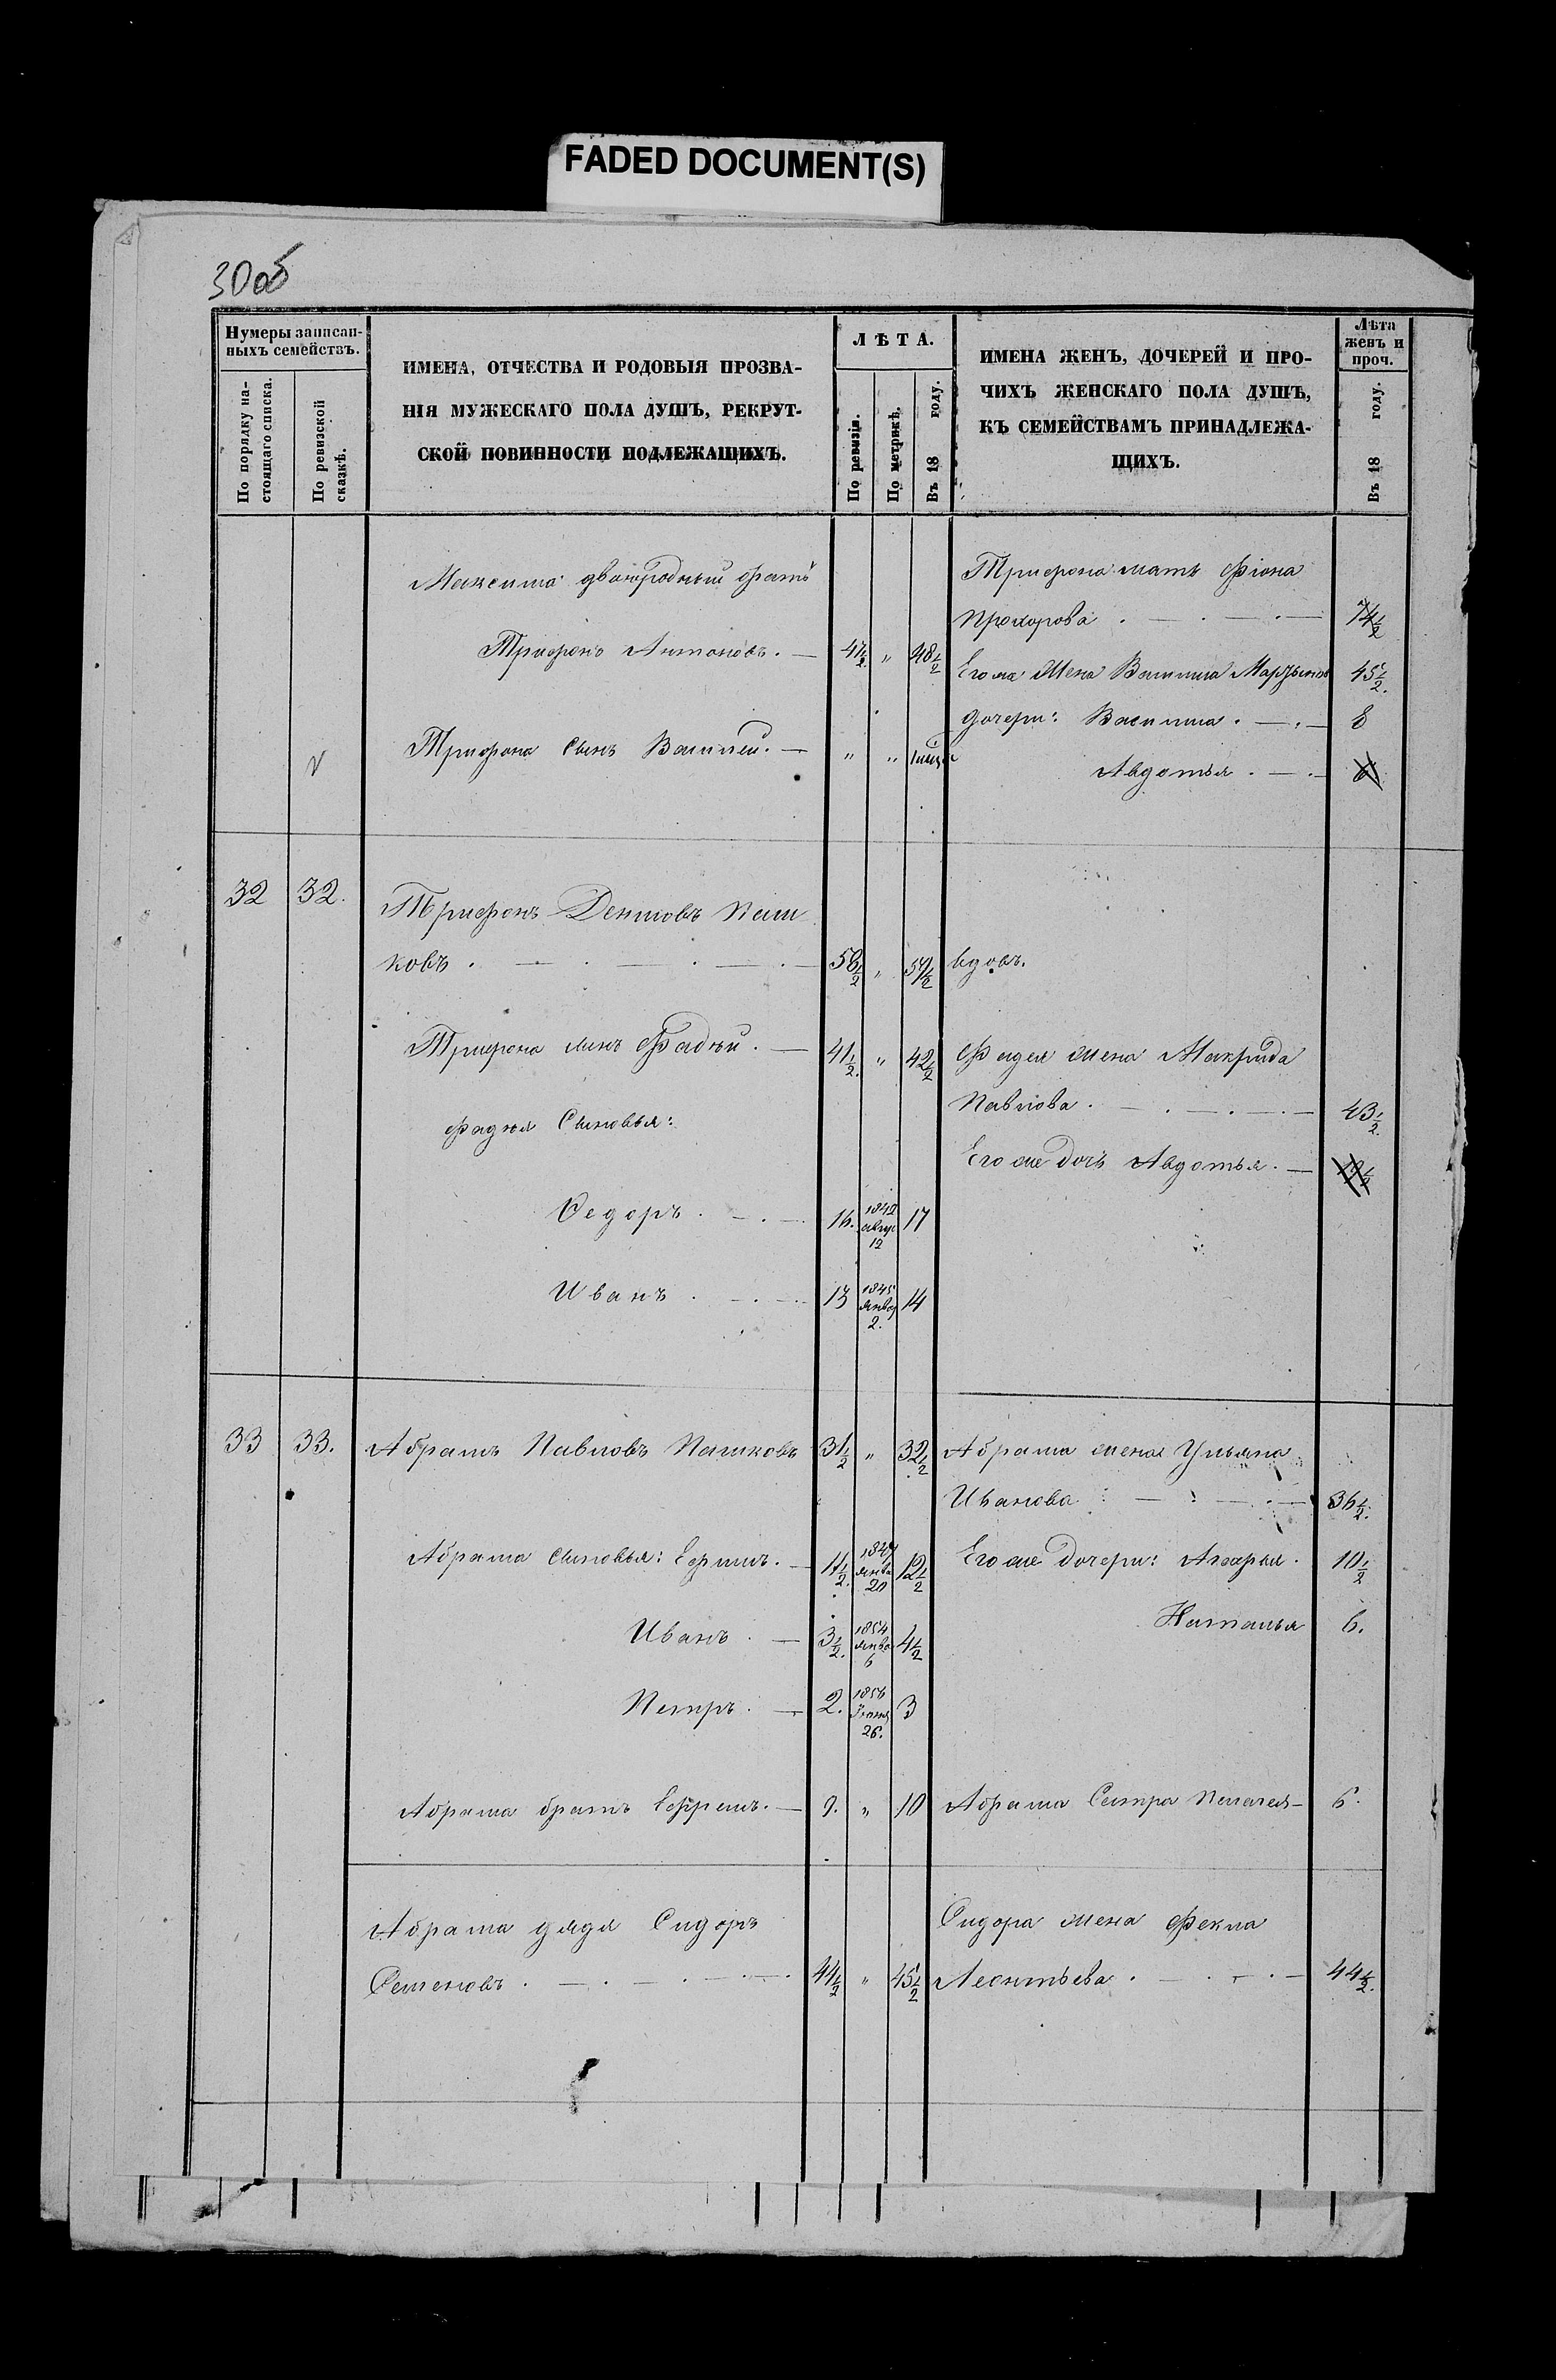 FADED DOCUMENT(S)
30 об
Нумеры записан-
ныхъ семействъ.
По порядку на-
стоящаго списка.
По ревизской
сказкѣ.
ИМЕНА, ОТЧЕСТВА И РОДОВЫЯ ПРОЗВА-
НІЯ МУЖЕСКАГО ПОЛА ДУШЪ, РЕКРУТ-
СКОЙ ПОВИННОСТИ ПОДЛЕЖАЩИХЪ.
ЛѢТА.
По ревизіи.
По метрикѣ.
Въ 18 году.
ИМЕНА ЖЕНЪ, ДОЧЕРЕЙ И ПРО-
ЧИХЪ ЖЕНСКАГО ПОЛА ДУШЪ,
КЪ СЕМЕЙСТВАМЪ ПРИНАДЛЕЖА-
ЩИХЪ.
Лѣта
женъ и
проч.
Въ 18 году.
Максима двоюродный братъ
Трифона мать Фіона
Прохорова . — . — . — 74 1/2
Трифонъ Антоновъ. — 47 1/2 " 48 1/2
Его же жена Василиса 45 1/2.
дочери: Василиса . — . — 8
Трифона сынъ Василій. — " "
Авдотья . — . — 6
32 32. Трифонъ Денисовъ Паш
ковъ . — . — . — . — 56 1/2 " 57 1/2 вдовъ.
Трифона сынъ Фадѣй. — 41 1/2. " 42 1/2 Фадея жена Макрида
Павлова . — . — . — 43 1/2.
Фадѣя сыновья:
Его же дочь Авдотья. — 19 1/2
Федоръ . — . — 16. 1842 август 12 17
Иванъ . — . — 13 1845 январ 2. 14
33 33. Абрамъ Павловъ Пашковъ 31 1/2 " 32 1/2 Абрама жена Ульяна
Иванова . — . — . — 36 1/2.
Абрама сыновья: Ефимъ. — 11 1/2. 1847 янва 20 12 1/2 Его же дочери: 10 1/2
Наталья 6.
Иванъ . — 3 1/2. 1854 янва 6 4 1/2
Петръ . — 2. 1856 26. 3
Абрама братъ Ефремъ. — 9. " 10 Абрама сестра Пелагея — 6.
Абрама дядя Сидоръ
Семеновъ . — . — . — . — . 44 1/2 " 45 1/2
Сидора жена Фекла
Леонтьева . — . — . — 44 1/2.